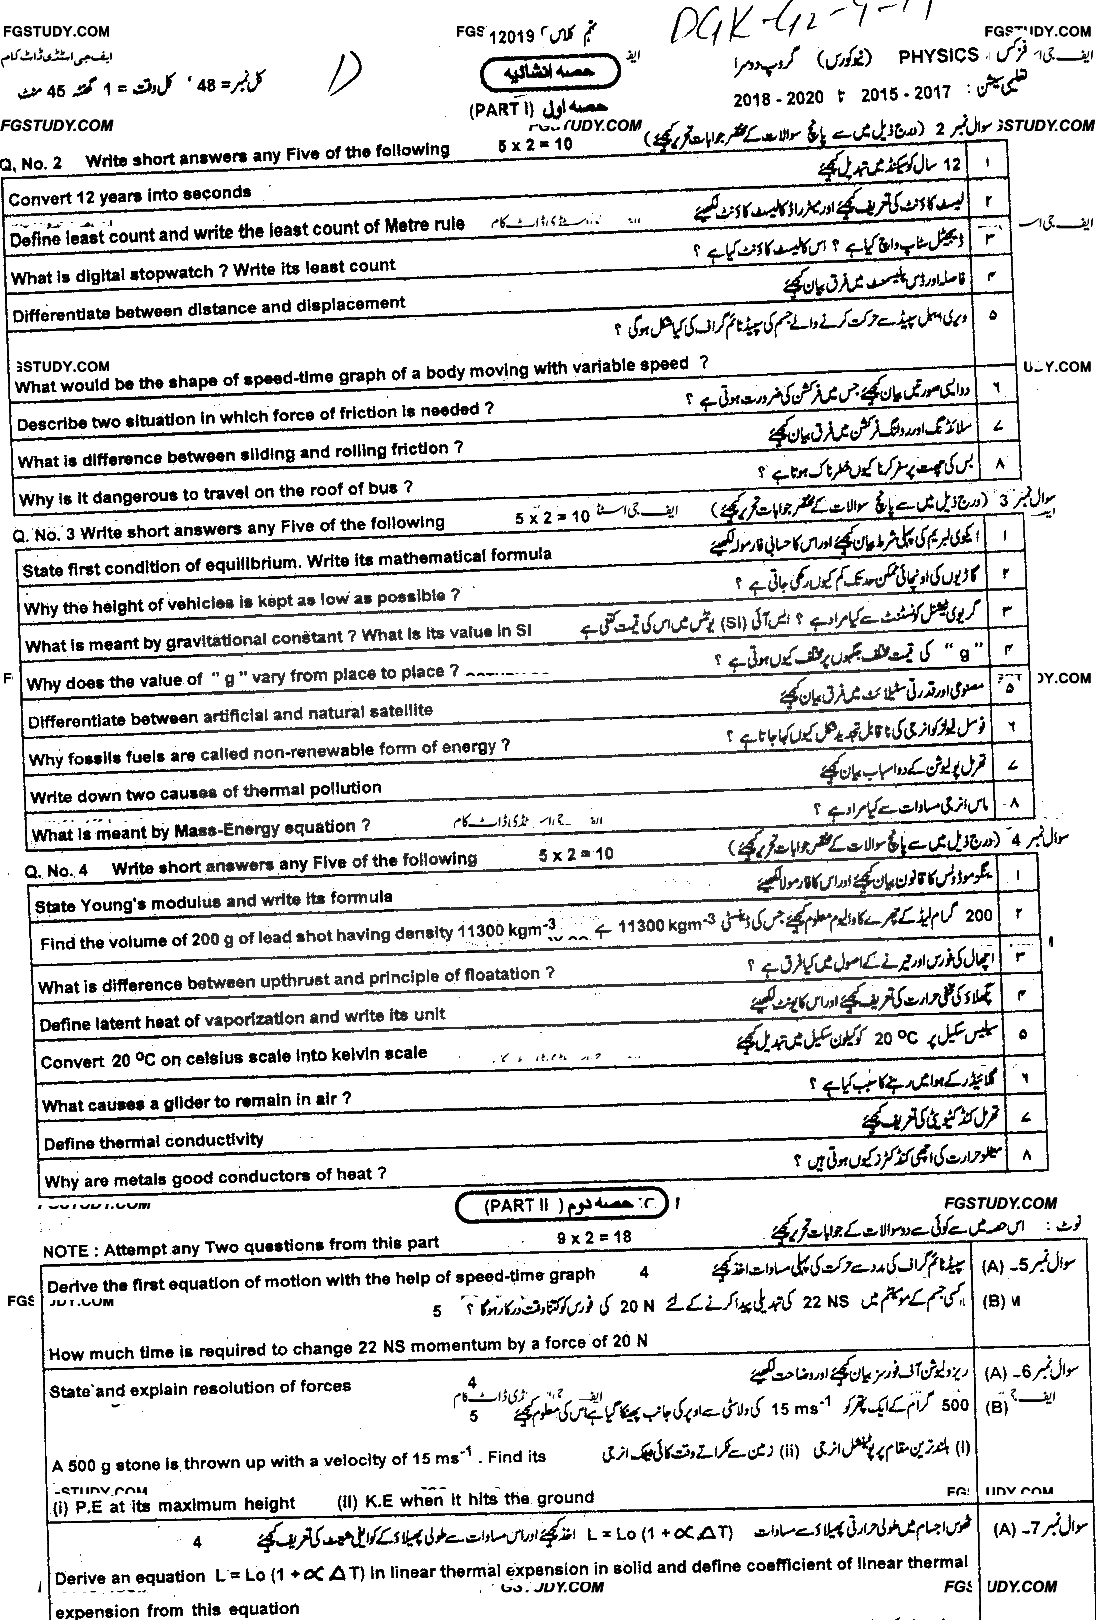 FGSTUDY.COM FGS 12019 نہم کلاس DGK-G2-9-19 FGSTUDY.COM
ایف جی اسٹڈی ڈاٹ کام حصہ انشائیہ PHYSICS فزکس (نیوکورس) گروپ دوسرا
کل نمبر = 48 کل وقت = 1 گھنٹہ 45 منٹ D (PART I) حصہ اول تعلیمی سیشن : 2015 - 2017 تا 2018 - 2020
FGSTUDY.COM UDY.COM STUDY.COM
سوال نمبر 2 (درج ذیل میں سے پانچ سوالات کے مختصر جوابات تحریر کیجئے)
Q, No. 2 Write short answers any Five of the following 5 x 2 = 10
12 سال کو سیکنڈ میں تبدیل کیجئے ۱
Convert 12 years into seconds
لیسٹ کاؤنٹ کی تعریف کیجئے اور میٹر راڈ کا لیسٹ کاؤنٹ لکھیئے ۲
Define least count and write the least count of Metre rule
ڈیجیٹل سٹاپ واچ کیا ہے ؟ اس کا لیسٹ کاؤنٹ کیا ہے ؟ ۳
What is digital stopwatch ? Write its least count
فاصلہ اور ڈس پلیسمنٹ میں فرق بیان کیجئے ۴
Differentiate between distance and displacement
ویری ایبل سپیڈ سے حرکت کرنے والے جسم کی سپیڈ ٹائم گراف کی کیا شکل ہوگی ؟ ۵
GSTUDY.COM
What would be the shape of speed-time graph of a body moving with variable speed ?
دو ایسی صورتیں بیان کیجئے جس میں فرکشن کی ضرورت ہوتی ہے ؟ ۶
Describe two situation in which force of friction is needed ?
سلائڈنگ اور رولنگ فرکشن میں فرق بیان کیجئے ۷
What is difference between sliding and rolling friction ?
بس کی چھت پر سفر کرنا کیوں خطرناک ہوتا ہے ؟ ۸
Why is it dangerous to travel on the roof of bus ?
سوال نمبر 3 (درج ذیل میں سے پانچ سوالات کے مختصر جوابات تحریر کیجئے)
Q. No. 3 Write short answers any Five of the following 5 x 2 = 10
ایکوی لبریم کی پہلی شرط بیان کیجئے اور اس کا حسابی فارمولہ لکھیئے ۱
State first condition of equilibrium. Write its mathematical formula
گاڑیوں کی اونچائی ممکن حد تک کم کیوں رکھی جاتی ہے ؟ ۲
Why the height of vehicles is kept as low as possible ?
گریوی ٹیشنل کونسٹنٹ سے کیا مراد ہے ؟ ایس آئی (SI) یونٹس میں اس کی قیمت کتنی ہے ۳
What is meant by gravitational constant ? What is its value in SI
" g " کی قیمت مختلف جگہوں پر مختلف کیوں ہوتی ہے ؟ ۴
Why does the value of " g " vary from place to place ?
مصنوعی اور قدرتی سٹیلائٹ میں فرق بیان کیجئے ۵
Differentiate between artificial and natural satellite
فوسل فیولز کو انرجی کی نا قابل تجدید شکل کیوں کہا جاتا ہے ؟ ۶
Why fossils fuels are called non-renewable form of energy ?
تھرمل پولیوشن کے دو اسباب بیان کیجئے ۷
Write down two causes of thermal pollution
ماس انرجی مساوات سے کیا مراد ہے ؟ ۸
What is meant by Mass-Energy equation ?
سوال نمبر 4 (درج ذیل میں سے پانچ سوالات کے مختصر جوابات تحریر کیجئے)
Q. No. 4 Write short answers any Five of the following 5 x 2 = 10
ینگز موڈولس کا قانون بیان کیجئے اور اس کا فارمولا لکھیئے ۱
State Young's modulus and write its formula
200 گرام لیڈ کے چھرے کا والیوم معلوم کیجئے جس کی ڈینسٹی 11300 kgm-3 ہے ۲
Find the volume of 200 g of lead shot having density 11300 kgm-3
اچھال کی فورس اور تیرنے کے اصول میں کیا فرق ہے ؟ ۳
What is difference between upthrust and principle of floatation ?
پگھلاؤ کی مخفی حرارت کی تعریف کیجئے اور اس کا یونٹ لکھیئے ۴
Define latent heat of vaporization and write its unit
سیلسیس سکیل پر 20 ºC کو کیلون سکیل میں تبدیل کیجئے ۵
Convert 20 ºC on celsius scale into kelvin scale
گلائیڈر کے ہوا میں رہنے کا سبب کیا ہے ؟ ۶
What causes a glider to remain in air ?
تھرمل کنڈکٹیویٹی کی تعریف کیجئے ۷
Define thermal conductivity
میٹلز حرارت کی اچھی کنڈکٹرز کیوں ہوتی ہیں ؟ ۸
Why are metals good conductors of heat ?
FGSTUDY.COM (PART II) حصہ دوم FGSTUDY.COM
نوٹ : اس حصہ میں سے کوئی سے دو سوالات کے جوابات تحریر کیجئے
NOTE : Attempt any Two questions from this part 9 x 2 = 18
سوال نمبر 5- (A) سپیڈ ٹائم گراف کی مدد سے حرکت کی پہلی مساوات اخذ کیجئے
Derive the first equation of motion with the help of speed-time graph 4
(B) کسی جسم کے مومینٹم میں 22 NS کی تبدیلی پیدا کرنے کے لئے 20 N کی فورس کو کتنا وقت درکار ہوگا ؟ 5
How much time is required to change 22 NS momentum by a force of 20 N
سوال نمبر 6- (A) ریزولیوشن آف فورسز بیان کیجئے اور وضاحت لکھیئے
State and explain resolution of forces 4
(B) 500 گرام کے ایک پتھر کو 15 ms-1 کی ولاسٹی سے اوپر کی جانب پھینکا گیا ہے اس کی معلوم کیجئے 5
(i) بلند ترین مقام پر پوٹینشل انرجی (ii) زمین سے ٹکراتے وقت کائی نیٹک انرجی
A 500 g stone is thrown up with a velocity of 15 ms-1 . Find its
STUDY.COM FG UDY.COM
(i) P.E at its maximum height (II) K.E when it hits the ground
سوال نمبر 7- (A) ٹھوس اجسام میں طولی حرارتی پھیلاؤ سے مساوات L = Lo (1 + ∝ΔT) اخذ کیجئے اور اس مساوات سے طولی پھیلاؤ کے کوایفی شینٹ کی تعریف کیجئے 4
Derive an equation L = Lo (1 + ∝ΔT) in linear thermal expension in solid and define coefficient of linear thermal
GSTUDY.COM FGS UDY.COM
expension from this equation